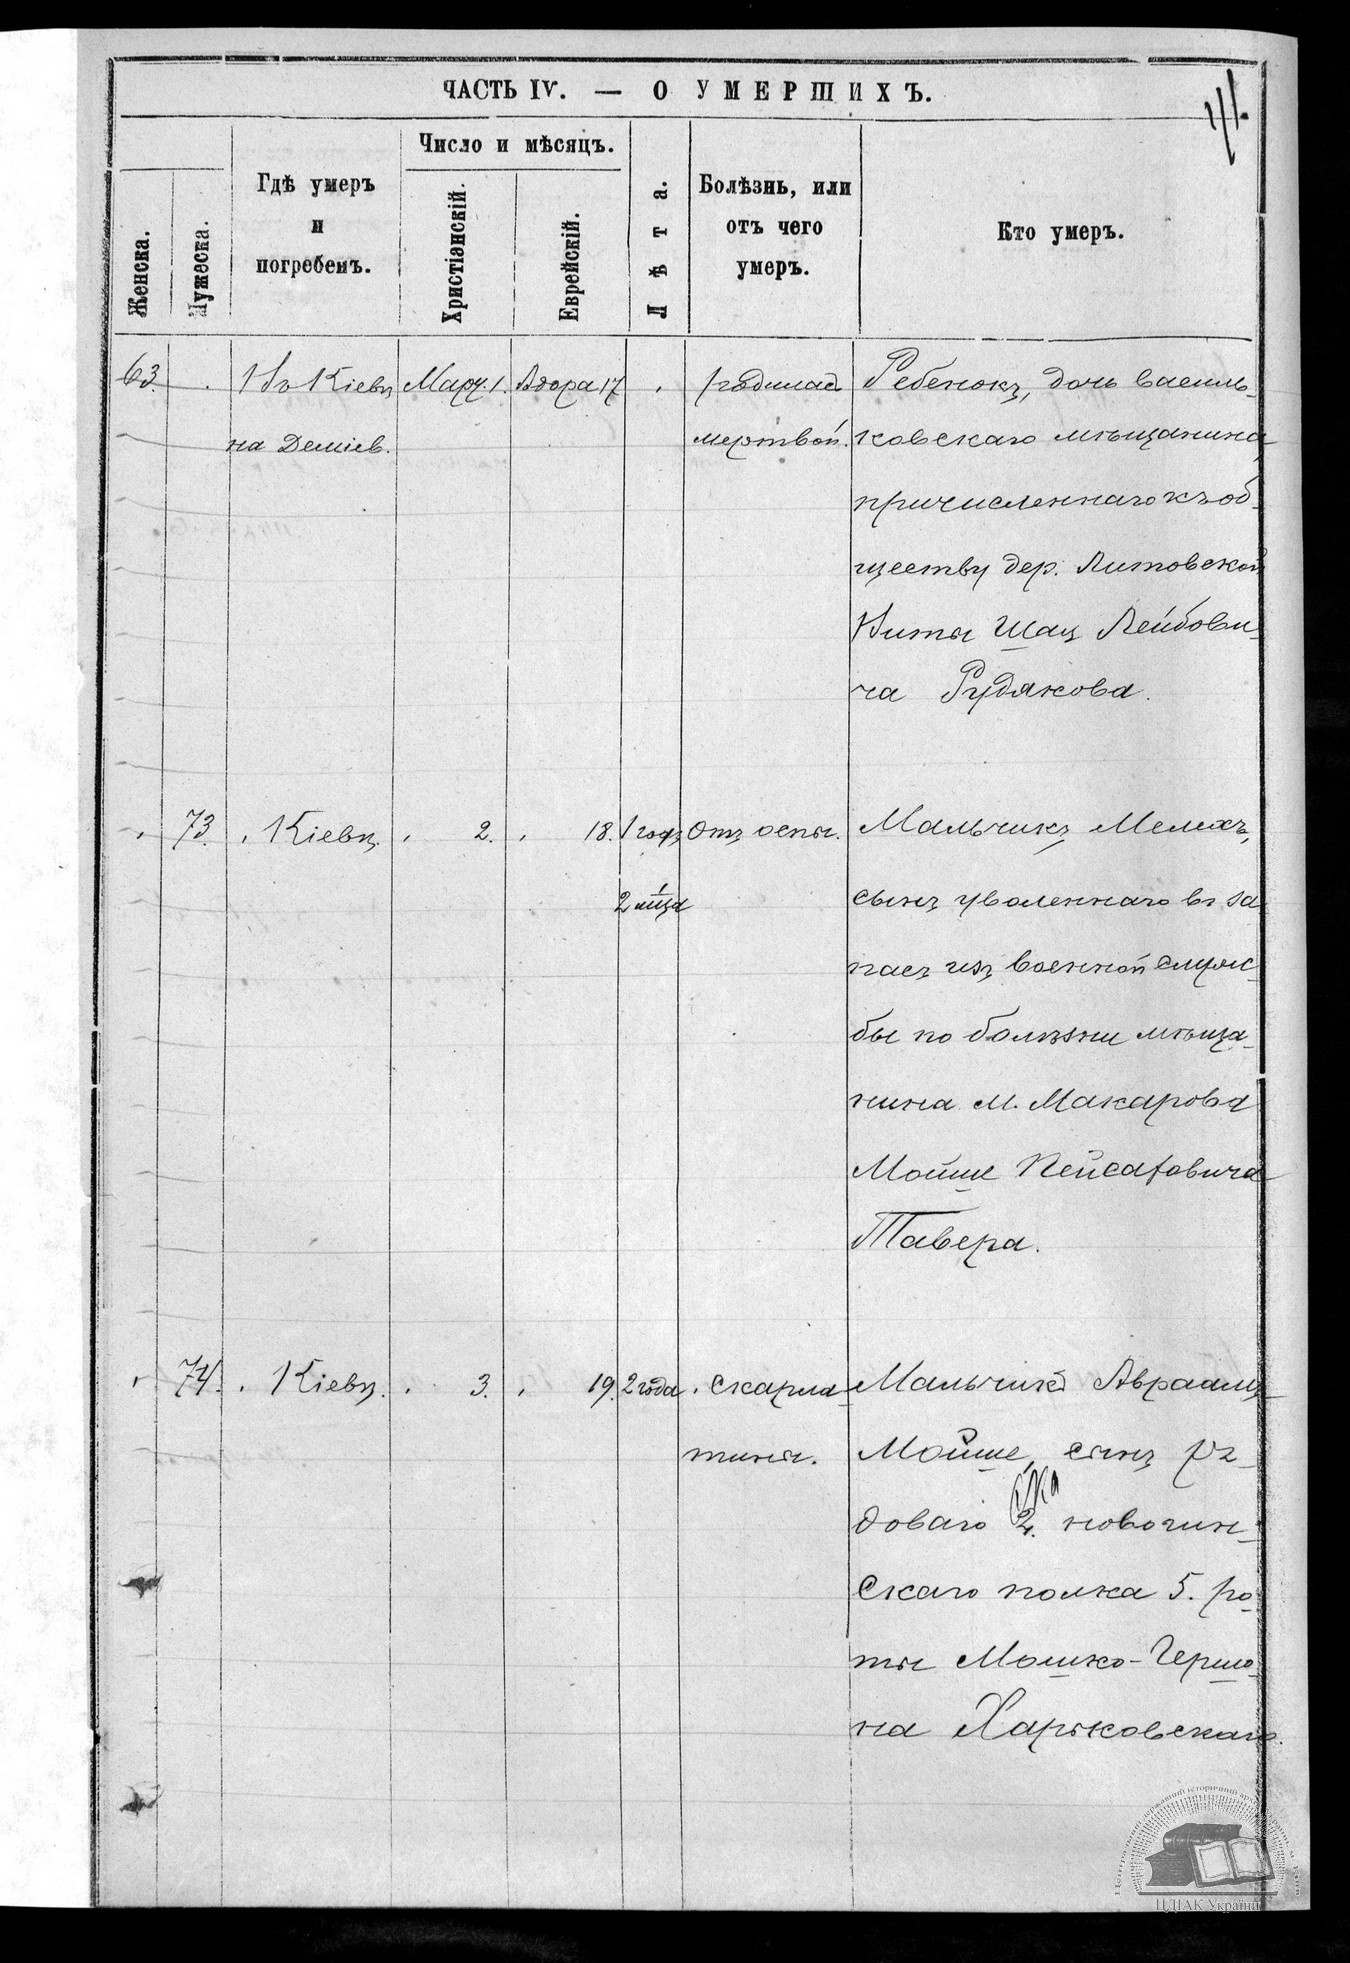 41.
ЧАСТЬ IV. — О УМЕРШИХЪ.
Женска.
Мужеска.
Гдѣ умеръ
и
погребенъ.
Число и мѣсяцъ.
Христіанскій.
Еврейскій.
Лѣта.
Болѣзнь, или
отъ чего
умеръ.
Кто умеръ.
63. Въ Кіевѣ Март. 1. Адора 17 родилась Ребенокъ, дочь василь-
на Деміев. мертвой. ковскаго мѣщанина,
причисленнаго къ об-
ществу дер. Литовской
Виты Шац Лейбови-
ча Рудякова.
73. Кіевѣ 2. 18. 1 годъ Отъ оспы. Мальчикъ Мелехъ,
2 мѣца сынъ уволеннаго въ за
пасъ изъ военной служ-
бы по болѣзни мѣща-
нина м. Макарова
Мошше Пейсаховича
Тавера.
74. Кіевѣ. 3. 19. 2 года скарла- Мальчикъ Авраамъ
тины. Мойше, сынъ ря-
доваго 2. новогин-
скаго полка 5. ро-
ты Мошко-Гершо-
на Харьковскаго.
ЦДІАК України